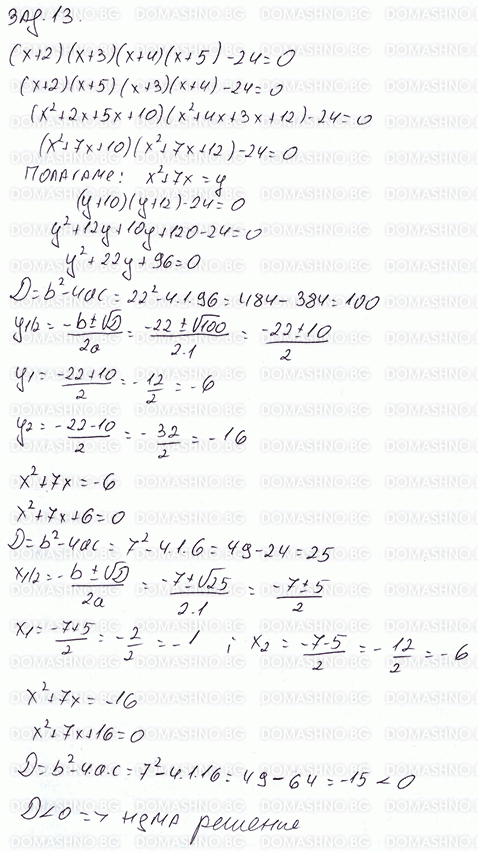 зад. 13.
(x+2)(x+3)(x+4)(x+5)-24=0
(x+2)(x+5)(x+3)(x+4)-24=0
(x²+2x+5x+10)(x²+4x+3x+12)-24=0
(x²+7x+10)(x²+7x+12)-24=0
Полагаме: x²+7x=y
(y+10)(y+12)-24=0
y²+12y+10y+120-24=0
y²+22y+96=0
D=b²-4ac=22²-4.1.96=484-384=100
y1/2=(-b±√D)/2a=(-22±√100)/2.1=(-22±10)/2
y1=(-22+10)/2=-12/2=-6
y2=(-22-10)/2=-32/2=-16
x²+7x=-6
x²+7x+6=0
D=b²-4ac=7²-4.1.6=49-24=25
x1/2=(-b±√D)/2a=(-7±√25)/2.1=(-7±5)/2
x1=(-7+5)/2=-2/2=-1 ; x2=(-7-5)/2=-12/2=-6
x²+7x=-16
x²+7x+16=0
D=b²-4.a.c=7²-4.1.16=49-64=-15<0
D<0 => няма решение